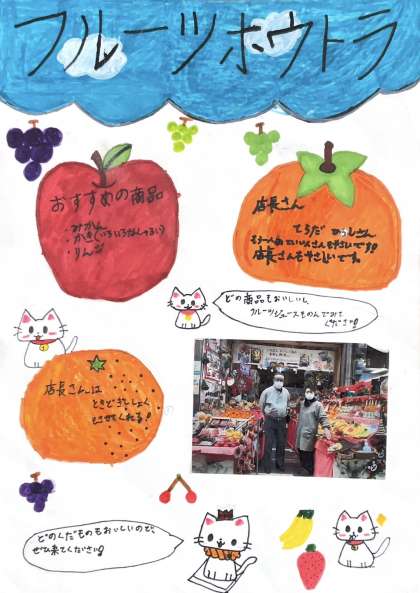 フルーツホウトラ
おすすめの商品
・みかん
・かき(いろいろなしゅるい)
・りんご
店長さん
てらだ
店長さんもやさしいです。
どの商品もおいしいし、
フルーツジュースものんでみて
ください!
店長さんは
ときどきししょく
させてくれる!
どのくだものもおいしいので、
ぜひ来てください!